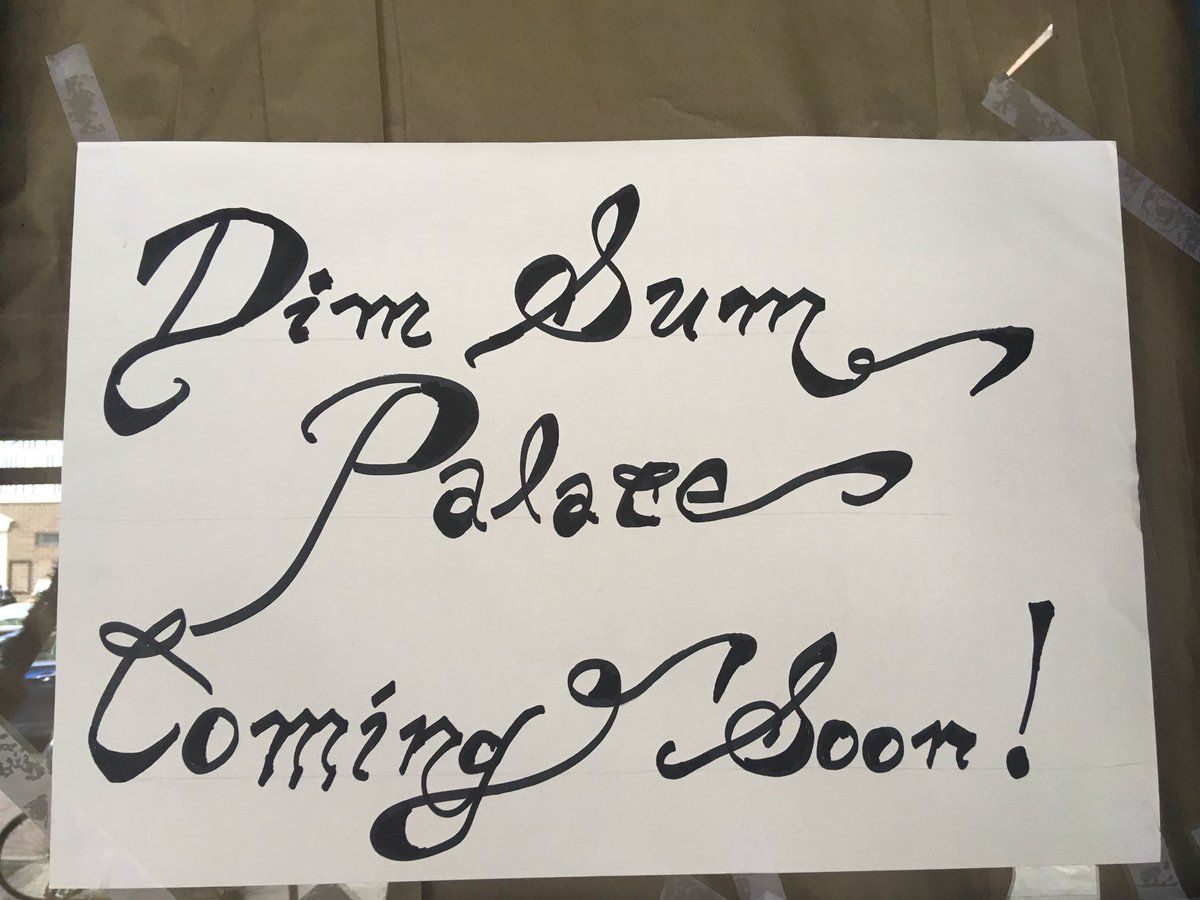 Dim Sum
Palace
Coming Soon!